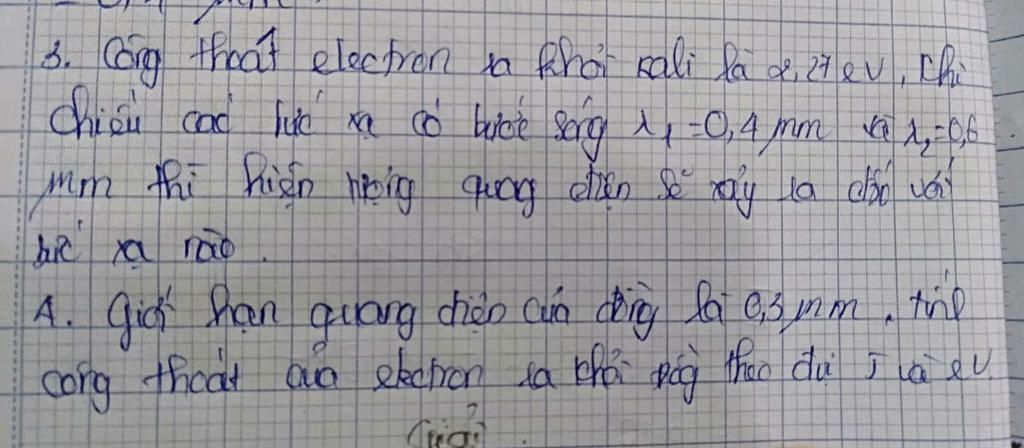 3. Công thoát electron ra khỏi kali là 2,27 eV, khi
chiếu các bức xạ có bước sóng λ₁=0,4 μm và λ₂=0,6
μm thì hiện tượng quang điện sẽ xảy ra đối với
bức xạ nào.
4. Giới hạn quang điện của đồng là 0,3 μm. tính
công thoát của electron ra khỏi đồng theo đvị J và eV.
Giải